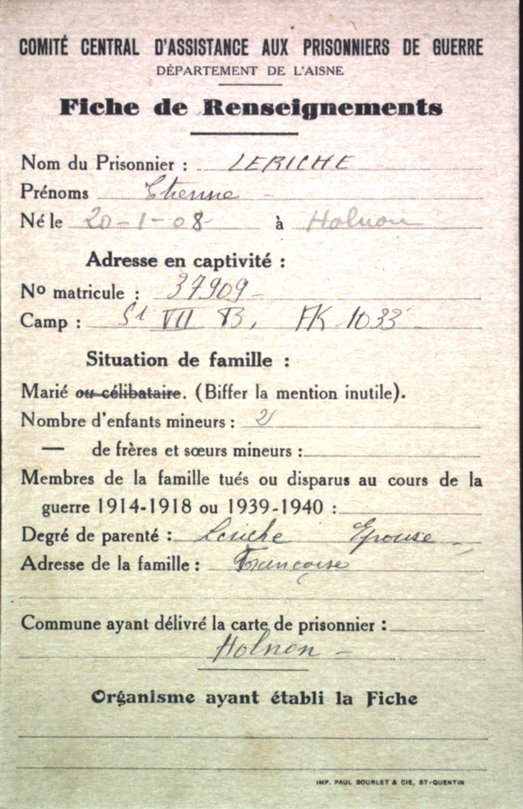 COMITÉ CENTRAL D'ASSISTANCE AUX PRISONNIERS DE GUERRE
DÉPARTEMENT DE L'AISNE
Fiche de Renseignements
Nom du Prisonnier : LERICHE
Prénoms Etienne -
Né le 20-1-08 à Holnon
Adresse en captivité :
No matricule : 37909 -
Camp : St VII B, AK 1033 -
Situation de famille :
Marié ou célibataire. (Biffer la mention inutile).
Nombre d'enfants mineurs : 2
— de frères et sœurs mineurs :
Membres de la famille tués ou disparus au cours de la
guerre 1914-1918 ou 1939-1940 :
Degré de parenté : Leriche Epouse -
Adresse de la famille : Françoise
Commune ayant délivré la carte de prisonnier :
Holnon -
Organisme ayant établi la Fiche
IMP. PAUL BOURLET & CIE, ST-QUENTIN